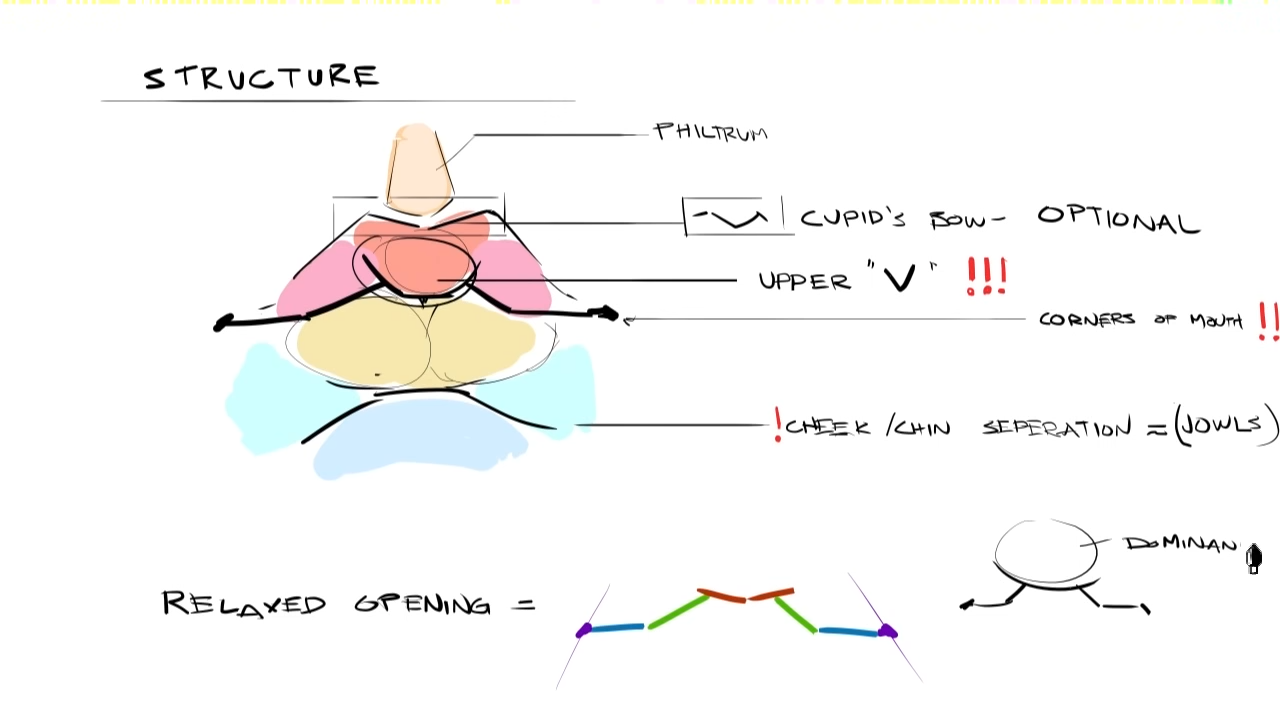 STRUCTURE
PHILTRUM
CUPID'S BOW- OPTIONAL
UPPER "V" !!!
CORNERS OF MOUTH !!
!CHEEK /CHIN SEPERATION ≈ (JOWLS)
DOMINAN
RELAXED OPENING =